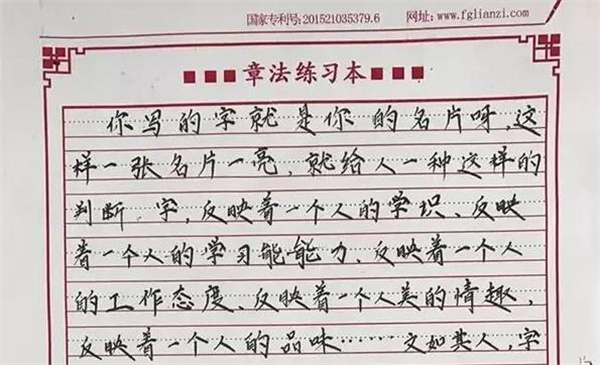 国家专利号:201521035379.6 网址:www.fglianzi.com
章法练习本
你写的字就是你的名片呀,这
样一张名片一亮、就给人一种这样的
判断.字,反映着一个人的学识、反映
着一个人的学习能能力、反映着一个人
的工作态度、反映着一个人美的情趣、
反映着一个人的品味……文如其人,字